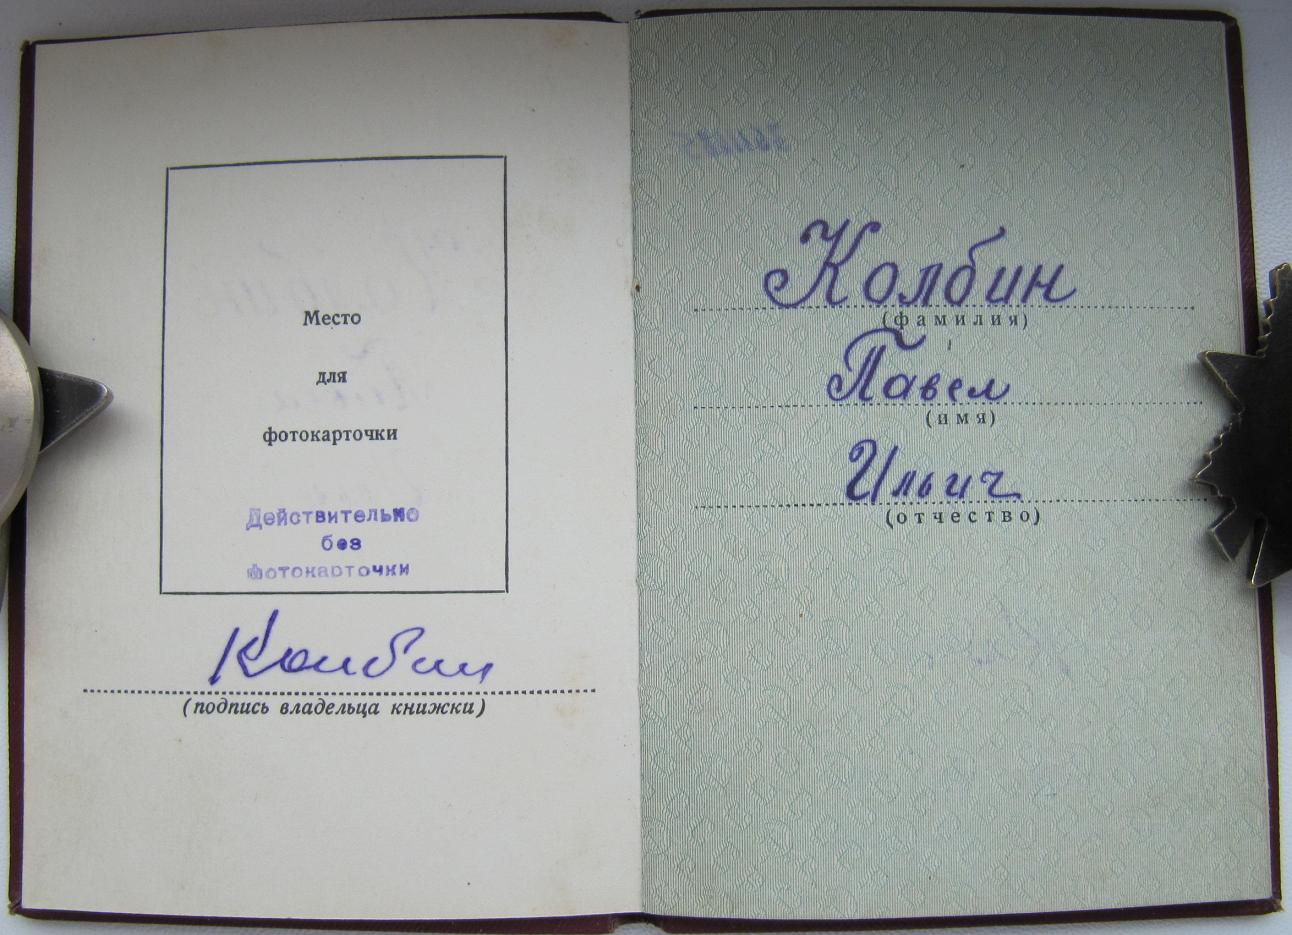 Место
для
фотокарточки
Действительно
без
фотокарточки
Колбин
(подпись владельца книжки)
Колбин
(фамилия)
Павел
(имя)
Ильич
(отчество)